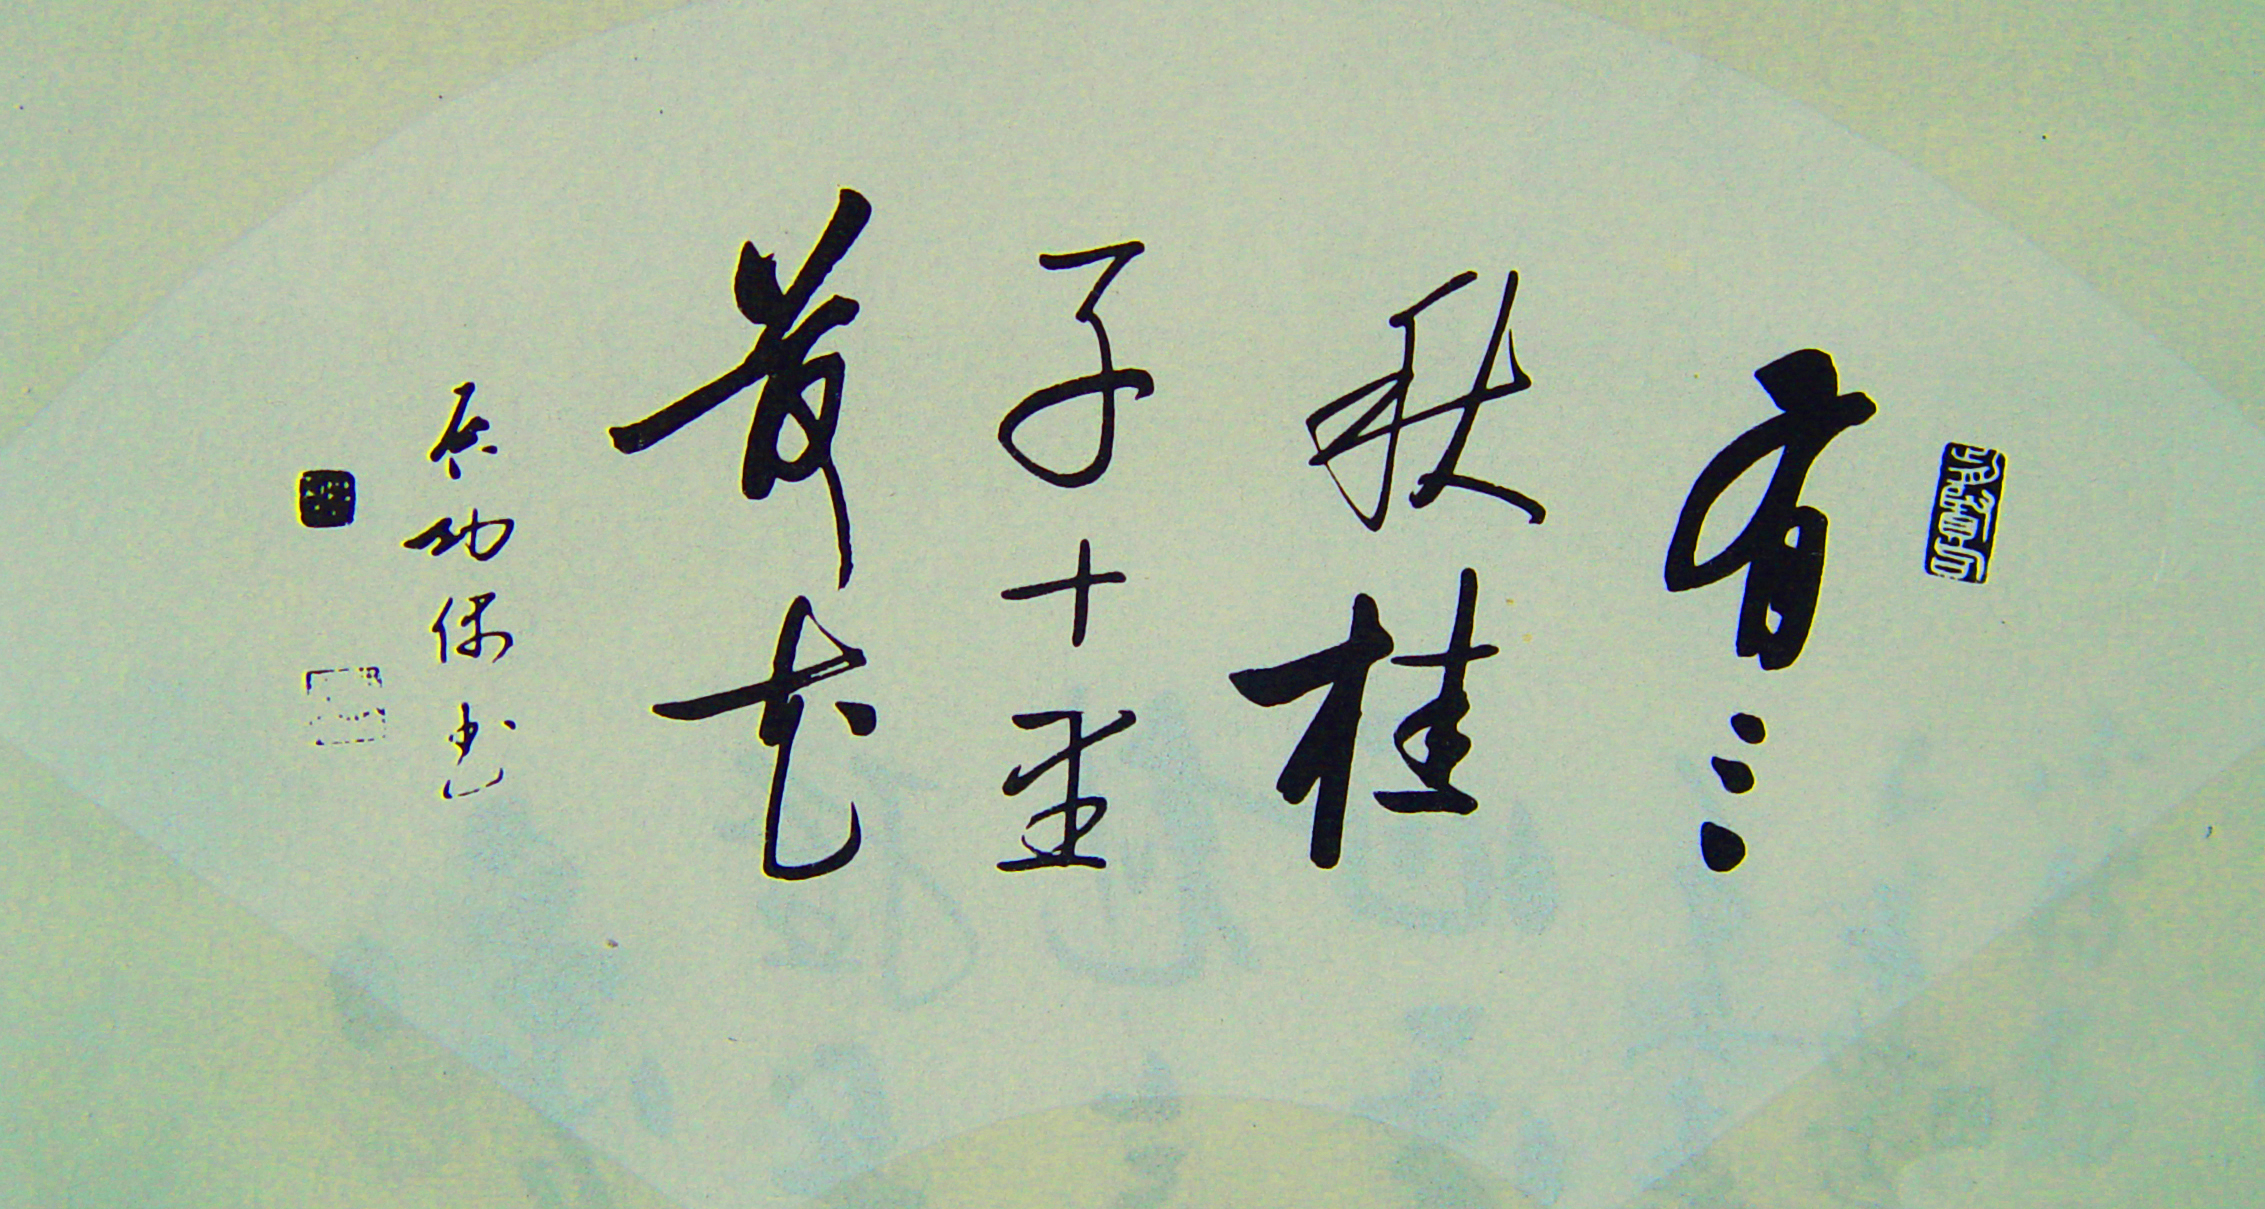 有三
秋桂
子十里
荷花
功保书